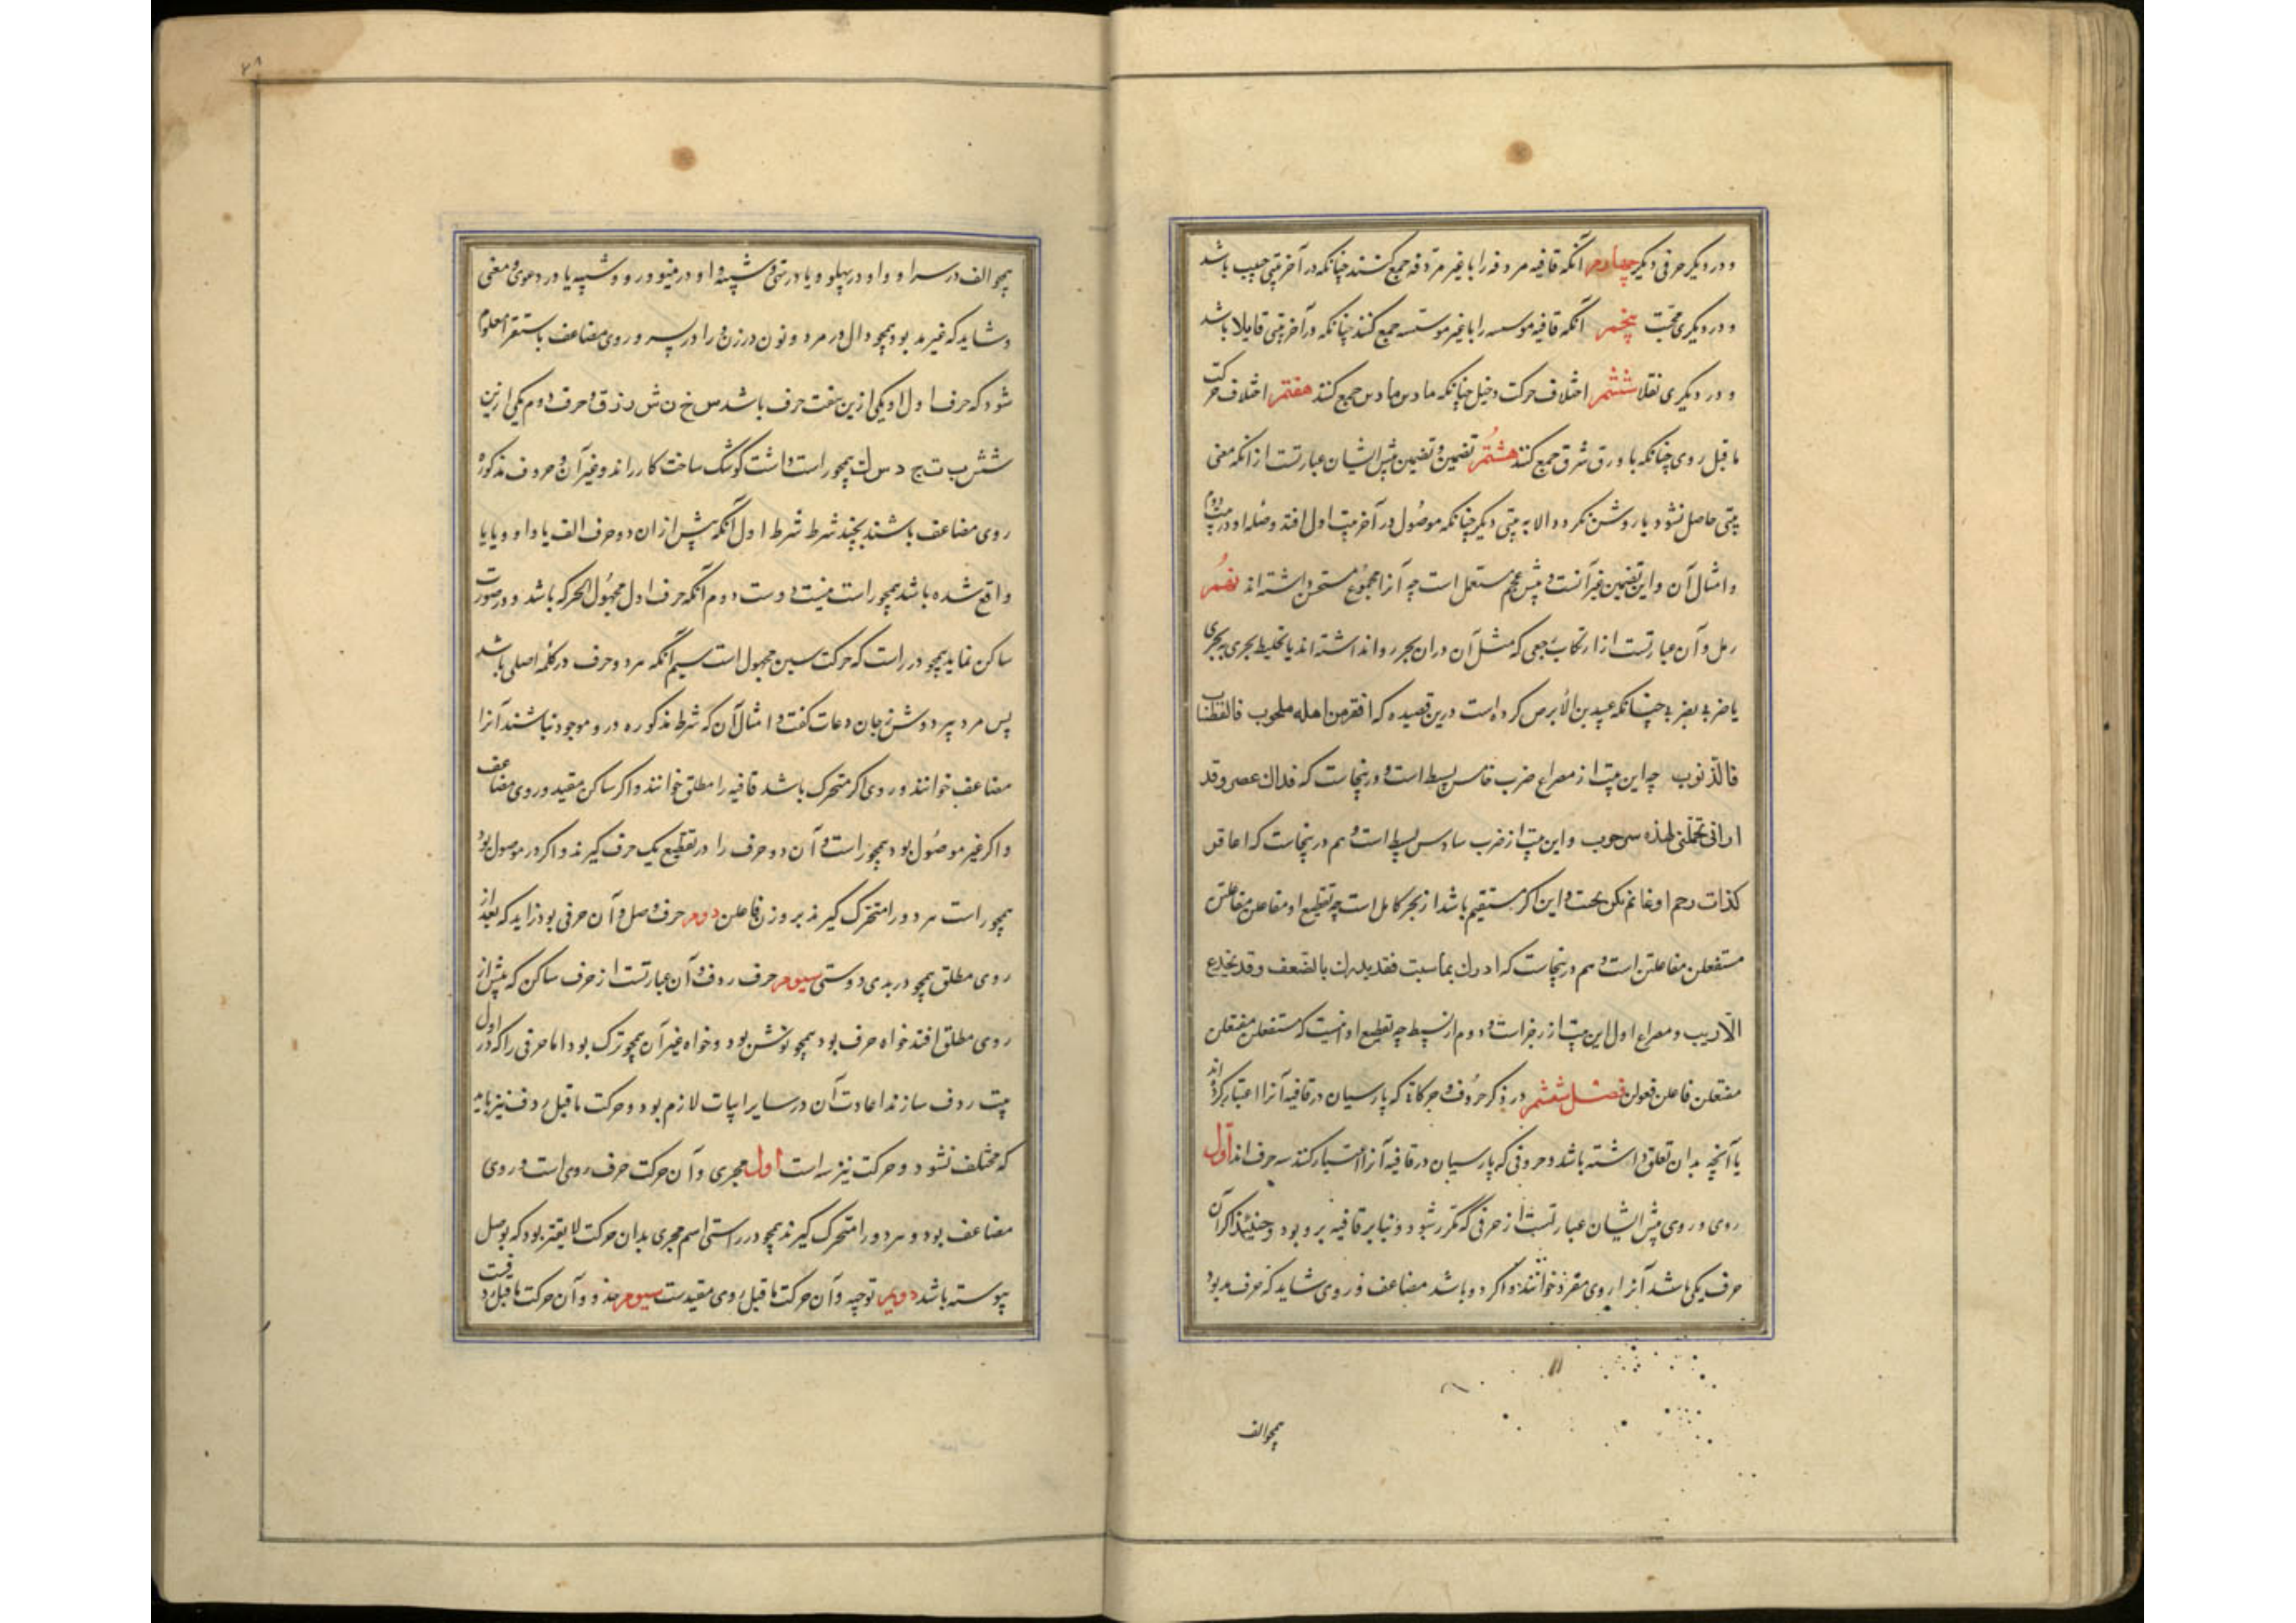 و در دیکر حرفی دیکر چهارم آنکه قافیه مردفه را با غیر مردفه جمع کنند چنانکه در آخر بیتی حبیب باشد
و در دیکری محبت پنجم آنکه قافیه موسسه را با غیر موسسه جمع کنند چنانکه در آخر بیتی قایلا باشد
و در دیکری نقلا ششم اختلاف حرکت دخیل چنانکه ما دس ما دس جمع کنند هفتم اختلاف حرکت
ما قبل روی چنانکه با ورق شرق جمع کنند هشتم تضمین و تضمین پیش ایشان عبارتست از انکه معنی
بیتی حاصل نشود یا روشن نکردد الا به بیتی دیکر چنانکه موصول در آخر بیت اول افتد و صله او در بیت دوم
و امثال آن و این تضمین غیر آنست و پیش عجم مستعمل است چه آنرا مجموع مستحسن داشته اند نهم
رمل و آن عبارتست از ارتکاب جمعی که مثل آن در ان بحر روا نداشته اند یا تخلیط بحری ببحری
یا ضربی بضربی چنانکه عبید بن الأبرص کرده است درین قصیده که اقفر من اهله ملحوب فالقطبیات
فالذنوب چه این بیت از مصراع ضرب خامس بسیط است و درینجاست که فذاك عصر وقد
ارانی تحملنی لهذه سرحوب و این بیت از ضرب سادس بسیط است و هم درینجاست که اعاقر
کذات رحم او غانم نکن بحت و این اکر مستقیم باشد از بحر کامل است چه تقطیع او مفاعلن مفاعلتن
مستفعلن مفاعلتن است و هم درینجاست که ادرك بما سبت فقد یدرك بالضعف وقد یخدع
الأدیب و مصراع اول این بیت از رجز است و دوم از بسیط چه تقطیع او اینست که مستفعلن مفتعلن
مفتعلن فاعلن فعولن فصل ششم در ذکر حروف و حرکاتی که پارسیان در قافیه آنرا اعتبار کرده اند
یا آنچه بدان تعلق داشته باشد و حروفی که پارسیان در قافیه آنرا اعتبار کنند سه حرف اند اول
روی و روی پیش ایشان عبارتست از حرفی که مکرر شود و بنا بر قافیه برو بود و حینئذ اکر آن
حرف یکی باشد آنرا روی مفرد خوانند و اکر دو باشد مضاعف و روی شاید که حرف مد بود
همچو الف
همچو الف در سرا و واو در پهلو و یا در تنی و شبیه واو در مینو و رو و شبیه یا در دعوی و معنی
و شاید که غیر مد بود همچو دال در مرد و نون در زن و را در پسر و روی مضاعف باستقرا معلوم
شود که حرف اول او یکی ازین هفت حرف باشد س خ ن ش ر ز ق و حرف دوم یکی ازین
شش ب ت ج د س ك همچو راست داشت کوشک ساخت کارد راند و غیر آن و حروف مذکوره
روی مضاعف باشند بچند شرط شرط اول آنکه پیش از ان دو حرف الف یا واو و یا یا
واقع شده باشد همچو راست نیست دوست دوم آنکه حرف اول مجهول الحرکه باشد و در صورت
ساکن نماید همچو در راست که حرکت سین مجهول است سیم آنکه هر دو حرف در کلمه اصلی باشد
پس مرد پیر دوش رنجان دعات کفت و امثال آن که شرط مذکوره درو موجود نباشند آنرا
مضاعف خوانند و روی اکر متحرک باشد قافیه را مطلق خوانند و اکر ساکن مقید و روی مضاعف
و اکر غیر موصول بود همچو راست و آن دو حرف را در تقطیع یک حرف کیرند و اکر در موصول بود
همچو راست هر دو را متحرک کیرند بر وزن فاعلن دوم حرف وصل و آن حرفی بود زاید که بعد از
روی مطلق همچو در بدی دوستی سیوم حرف ردف و آن عبارتست از حرف ساکن که پیش از
روی مطلق افتد خواه حرف بود همچو نوشن بود و خواه غیر آن همچو ترک بود اما حرفی را که در اول
بیت ردف سازند اعادت آن در سایر ابیات لازم بود و حرکت ما قبل ردف نیز باید
که مختلف نشود و حرکت نیز سه است اول مجری و آن حرکت حرف روی است و روی
مضاعف بود و هر دو را متحرک کیرند همچو در راستی اسم مجری بدان حرکت لایقتر بود که بوصل
پیوسته باشد دویم توجیه و آن حرکت ما قبل روی مقیدست سیوم حذو و آن حرکت ما قبل ردفست